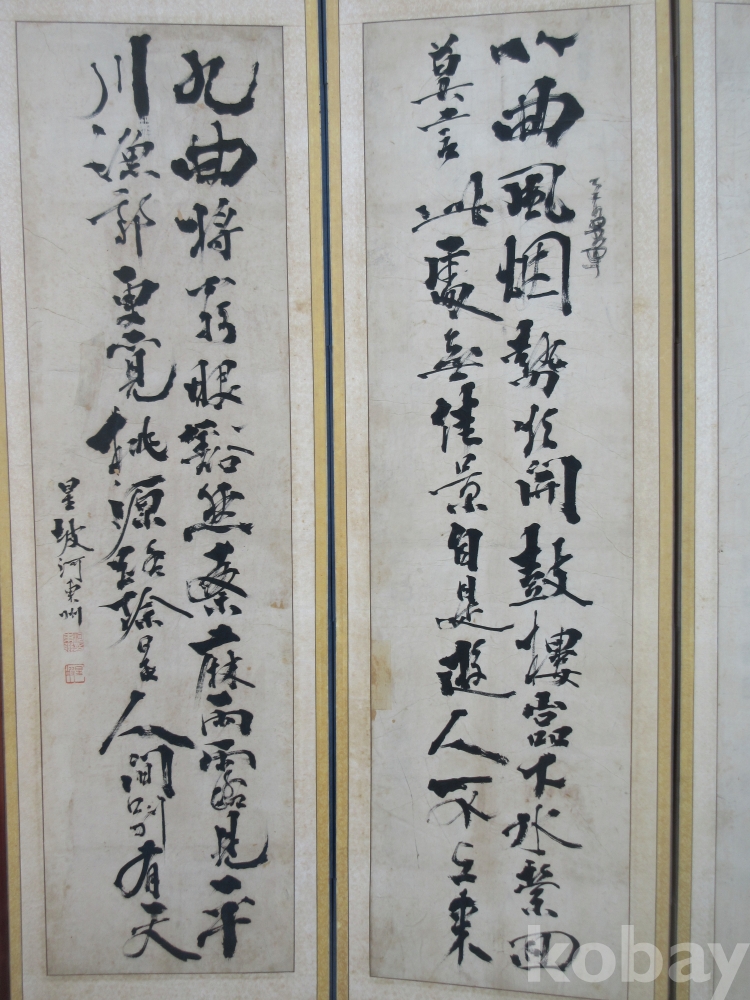 八曲風烟勢欲開鼓樓嵒下水縈回
莫言此處無佳景自是遊人不上來
九曲將窮眼豁然桑麻雨露見平
川漁郎更覓桃源路除是人間別有天
星坡河東州
kobay